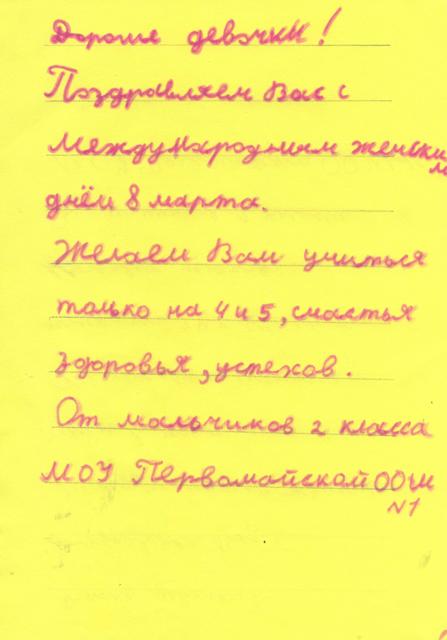 Дорогие девочки!
Поздравляем Вас с
Международным женским
днём 8 марта.
Желаем Вам учиться
только на 4 и 5, счастья
здоровья, успехов.
От мальчиков 2 класса
МОУ Первомайской ООШ
№1